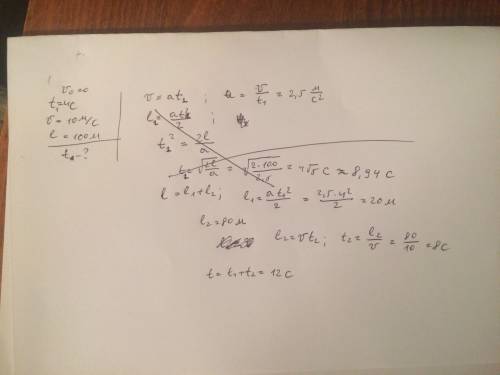 v₀=0
t₁=4с
v=10м/с
l=100м
t-?
v=at₁ ; a=v/t₁=2,5 м/с²
l=at²/2 ;
t²=2l/a
t=√(2l/a)=√(2·100/2,5)=4√5 с ≈ 8,94 с
l=l₁+l₂; l₁=at₁²/2=2,5·4²/2=20м
l₂=80м
l₂=vt₂; t₂=l₂/v=80/10=8с
t=t₁+t₂=12с